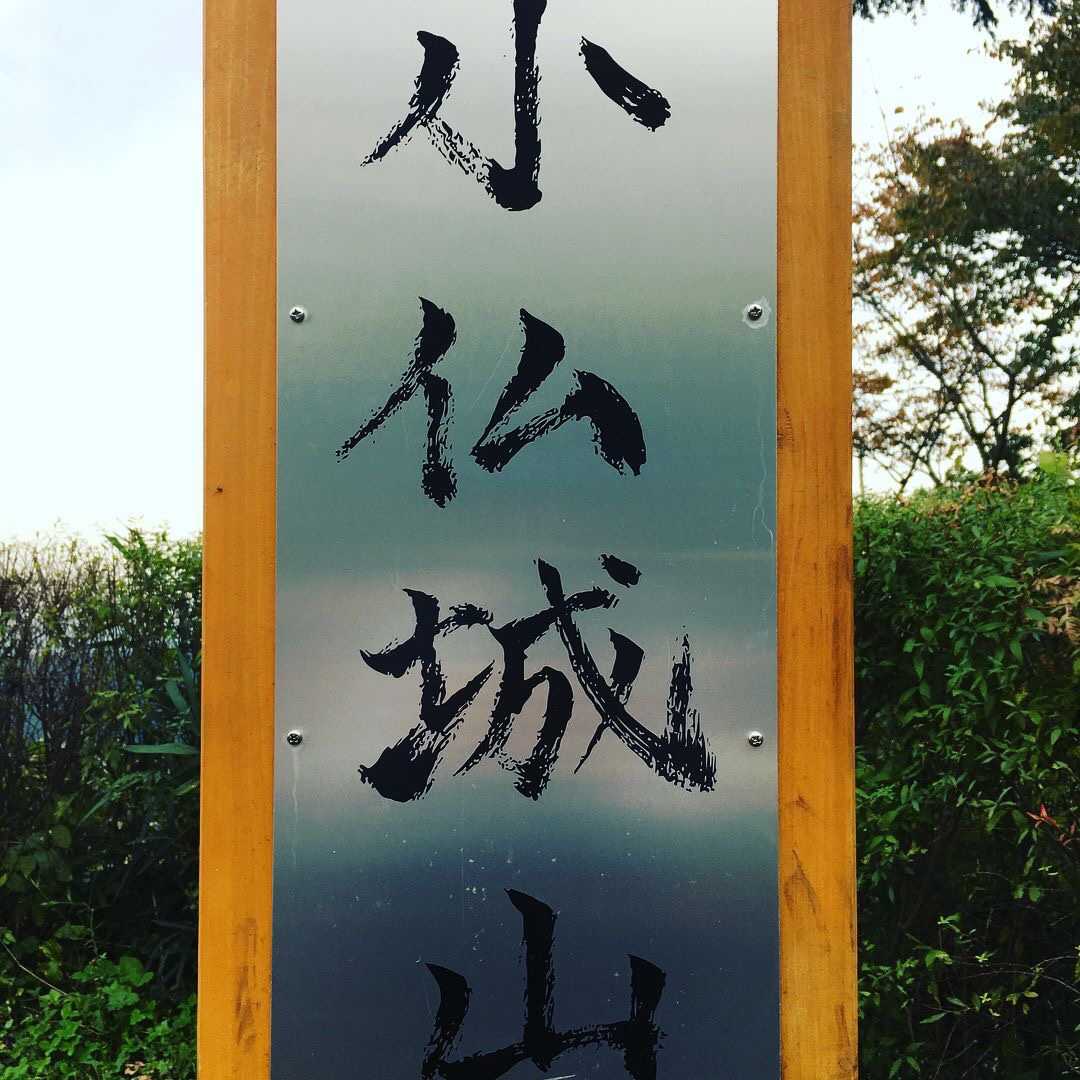 小仏城山